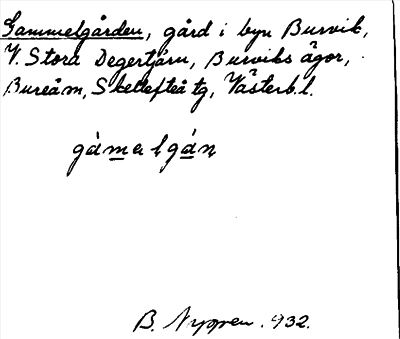 Gammelgården, gård i byn Burvik,
V. Stora Degertjärn, Burviks ägor,
Bureå m, Skellefteå tg, Västerb.l.
gàmalgán
B. Nygren. 932.